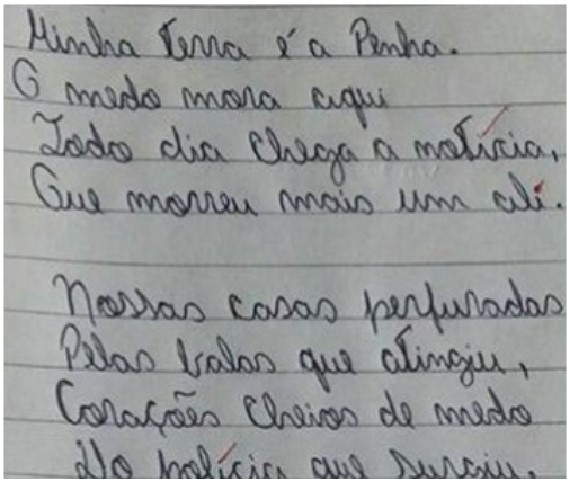 Minha terra é a Penha.
O medo mora aqui
Todo dia chega a notícia,
Que morreu mais um ali.
Nossas casas perfuradas
Pelas balas que atingiu,
Corações cheios de medo
Do polícia que surgiu.